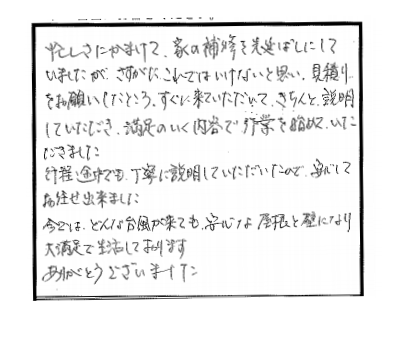 忙しさにかまけて、家の補修を先延ばしにして
いましたが、さすがにこれではいけないと思い、見積り
をお願いしたところ、すぐに来ていただいて、きちんと説明
していただき、満足のいく内容で作業を始めていた
だきました
行程途中でも、丁寧に説明していただいたので、安心して
お任せ出来ました
今では、どんな台風が来ても、安心な屋根と壁になり
大満足で生活しております
ありがとうございました